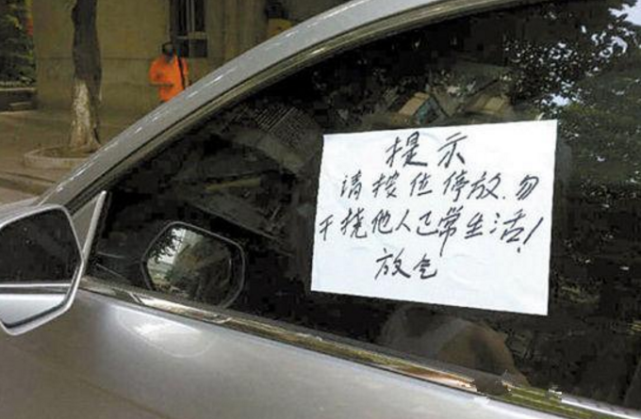 提示
请按位停放.勿
干挠他人正常生活!
放气